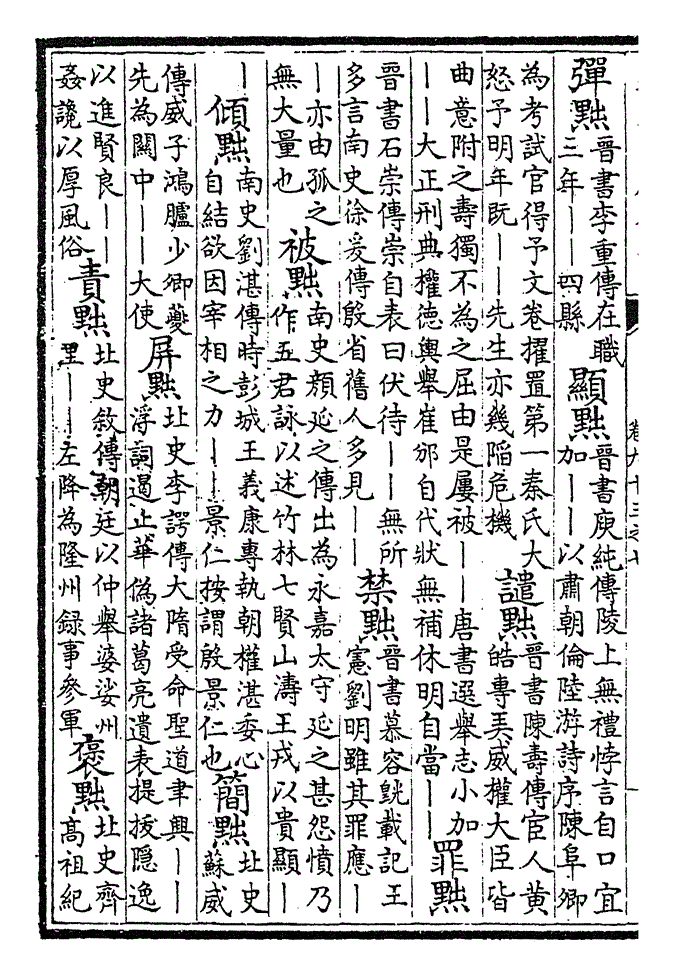 彈黜晉書李重傳在職三年——四縣 顯黜晉書庾純傳陵上無禮悖言自口宜加——以肅朝倫陸游詩序陳阜卿
為考試官得予文卷擢置第一秦氏大怒予明年既——先生亦幾陷危機 譴黜晉書陳壽傳宦人黃皓專美威權大臣皆
曲意附之壽獨不為之屈由是屢被——唐書選舉志小加——大正刑典權德輿舉崔邠自代狀無補休明自當—— 罪黜
晉書石崇傳崇自表曰伏待——無所多言南史徐爰傳殷省舊人多見—— 禁黜晉書慕容皝載記王憲劉明雖其罪應—
—亦由孤之無大量也 被黜南史顏延之傳出為永嘉太守延之甚怨憤乃作五君詠以述竹林七賢山濤王戎以貴顯—
— 傾黜南史劉湛傳時彭城王義康專執朝權湛委心自結欲因宰相之力——景仁按謂殷景仁也 簡黜北史蘇威
傳威子鴻臚少卿夔先為關中——大使 屏黜北史李諤傳大隋受命聖道聿興——浮詞遏止華偽諸葛亮遺表提拔隐逸
以進賢良——姦讒以厚風俗 責黜北史敘傳朝廷以仲舉婆娑州里——左降為隆州録事參軍 褒黜北史齊高祖紀
卷九十三之七